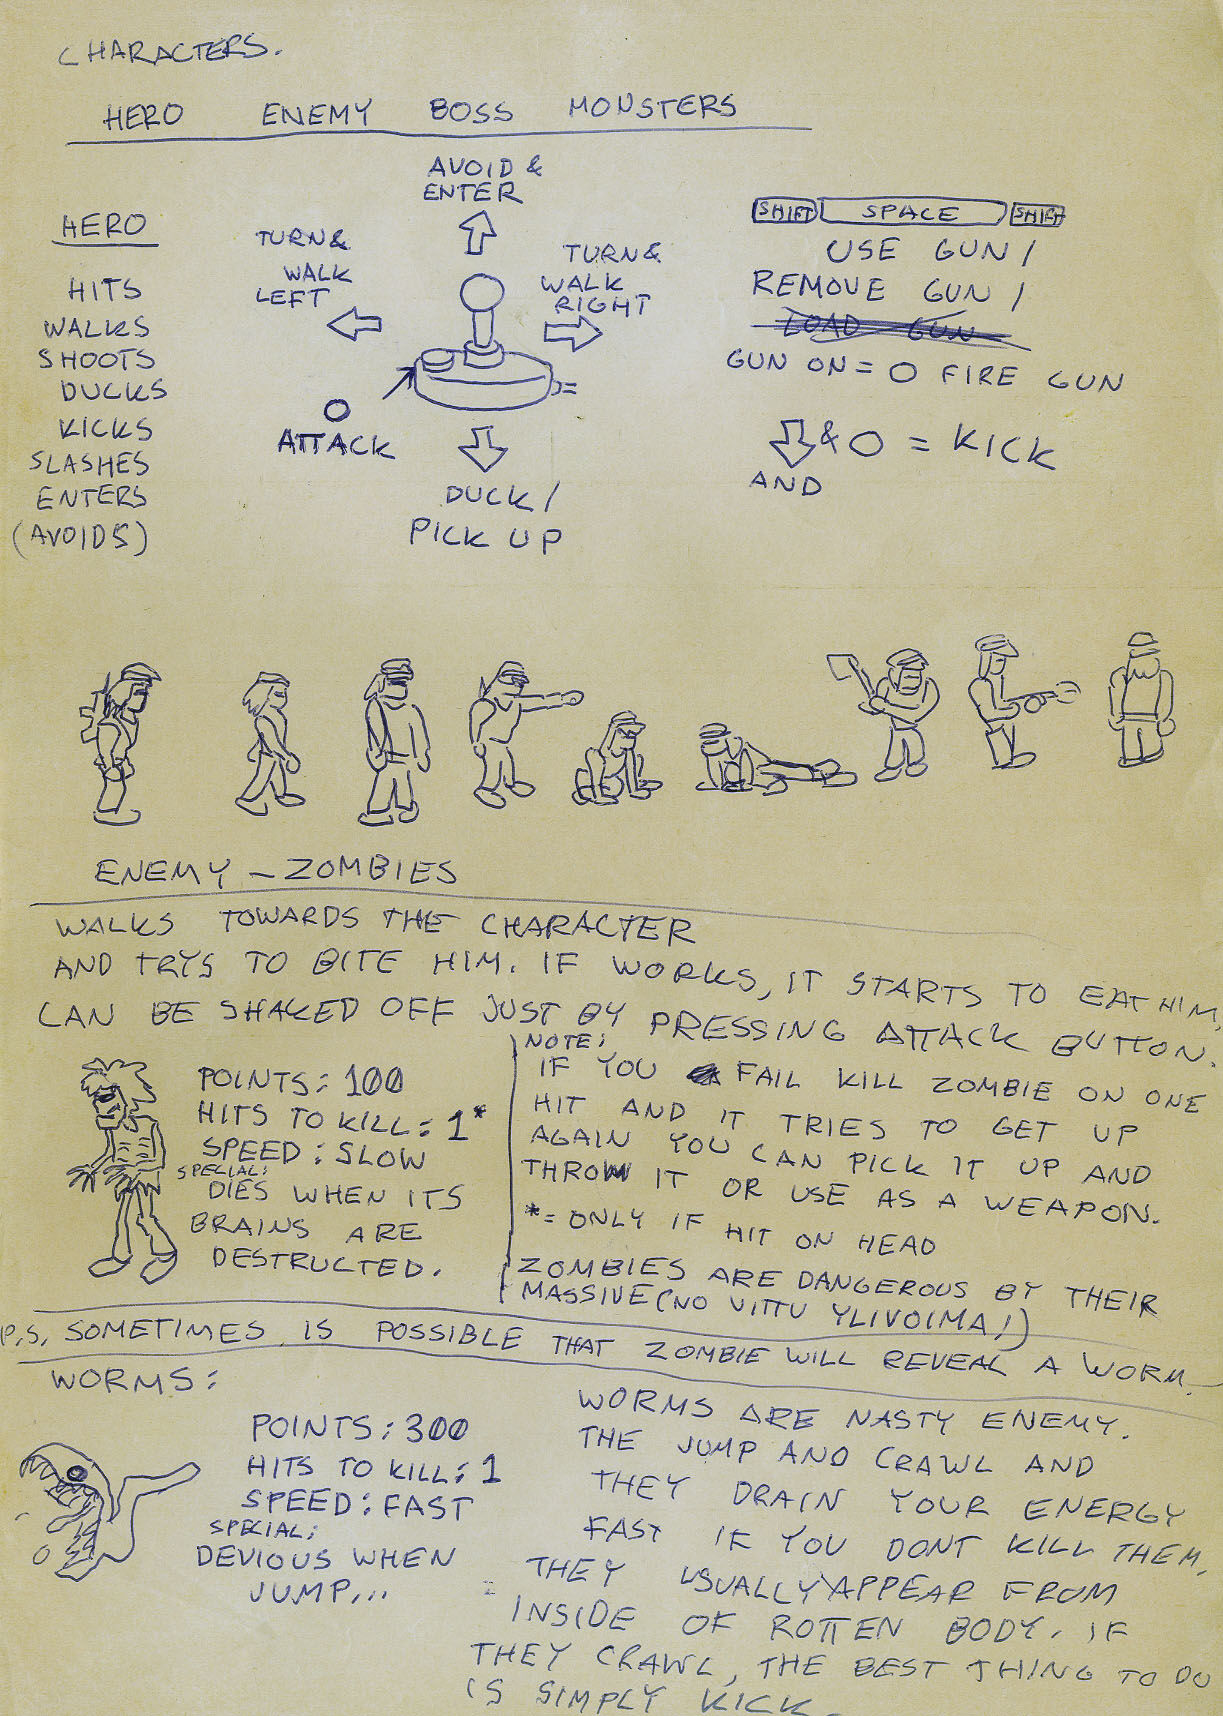 CHARACTERS.
HERO ENEMY BOSS MONSTERS
HERO
HITS
WALKS
SHOOTS
DUCKS
KICKS
SLASHES
ENTERS
(AVOIDS)
AVOID &
ENTER
TURN &
WALK
LEFT
TURN &
WALK
RIGHT
ATTACK
DUCK /
PICK UP
SHIFT SPACE SHIFT
USE GUN /
REMOVE GUN /
LOAD GUN
GUN ON = O FIRE GUN
& O = KICK
AND
ENEMY - ZOMBIES
WALKS TOWARDS THE CHARACTER
AND TRYS TO BITE HIM. IF WORKS, IT STARTS TO EAT HIM,
CAN BE SHAKED OFF JUST BY PRESSING ATTACK BUTTON.
POINTS: 100
HITS TO KILL: 1*
SPEED: SLOW
SPECIAL:
DIES WHEN ITS
BRAINS ARE
DESTRUCTED.
NOTE:
IF YOU FAIL KILL ZOMBIE ON ONE
HIT AND IT TRIES TO GET UP
AGAIN YOU CAN PICK IT UP AND
THROW IT OR USE AS A WEAPON.
*= ONLY IF HIT ON HEAD
ZOMBIES ARE DANGEROUS BY THEIR
MASSIVE (NO VITTU YLIVOIMA!)
P.S. SOMETIMES IS POSSIBLE THAT ZOMBIE WILL REVEAL A WORM.
WORMS:
POINTS: 300
HITS TO KILL: 1
SPEED: FAST
SPECIAL:
DEVIOUS WHEN
JUMP...
WORMS ARE NASTY ENEMY.
THE JUMP AND CRAWL AND
THEY DRAIN YOUR ENERGY
FAST IF YOU DONT KILL THEM.
THEY USUALLY APPEAR FROM
INSIDE OF ROTTEN BODY. IF
THEY CRAWL, THE BEST THING TO DO
IS SIMPLY KICK.